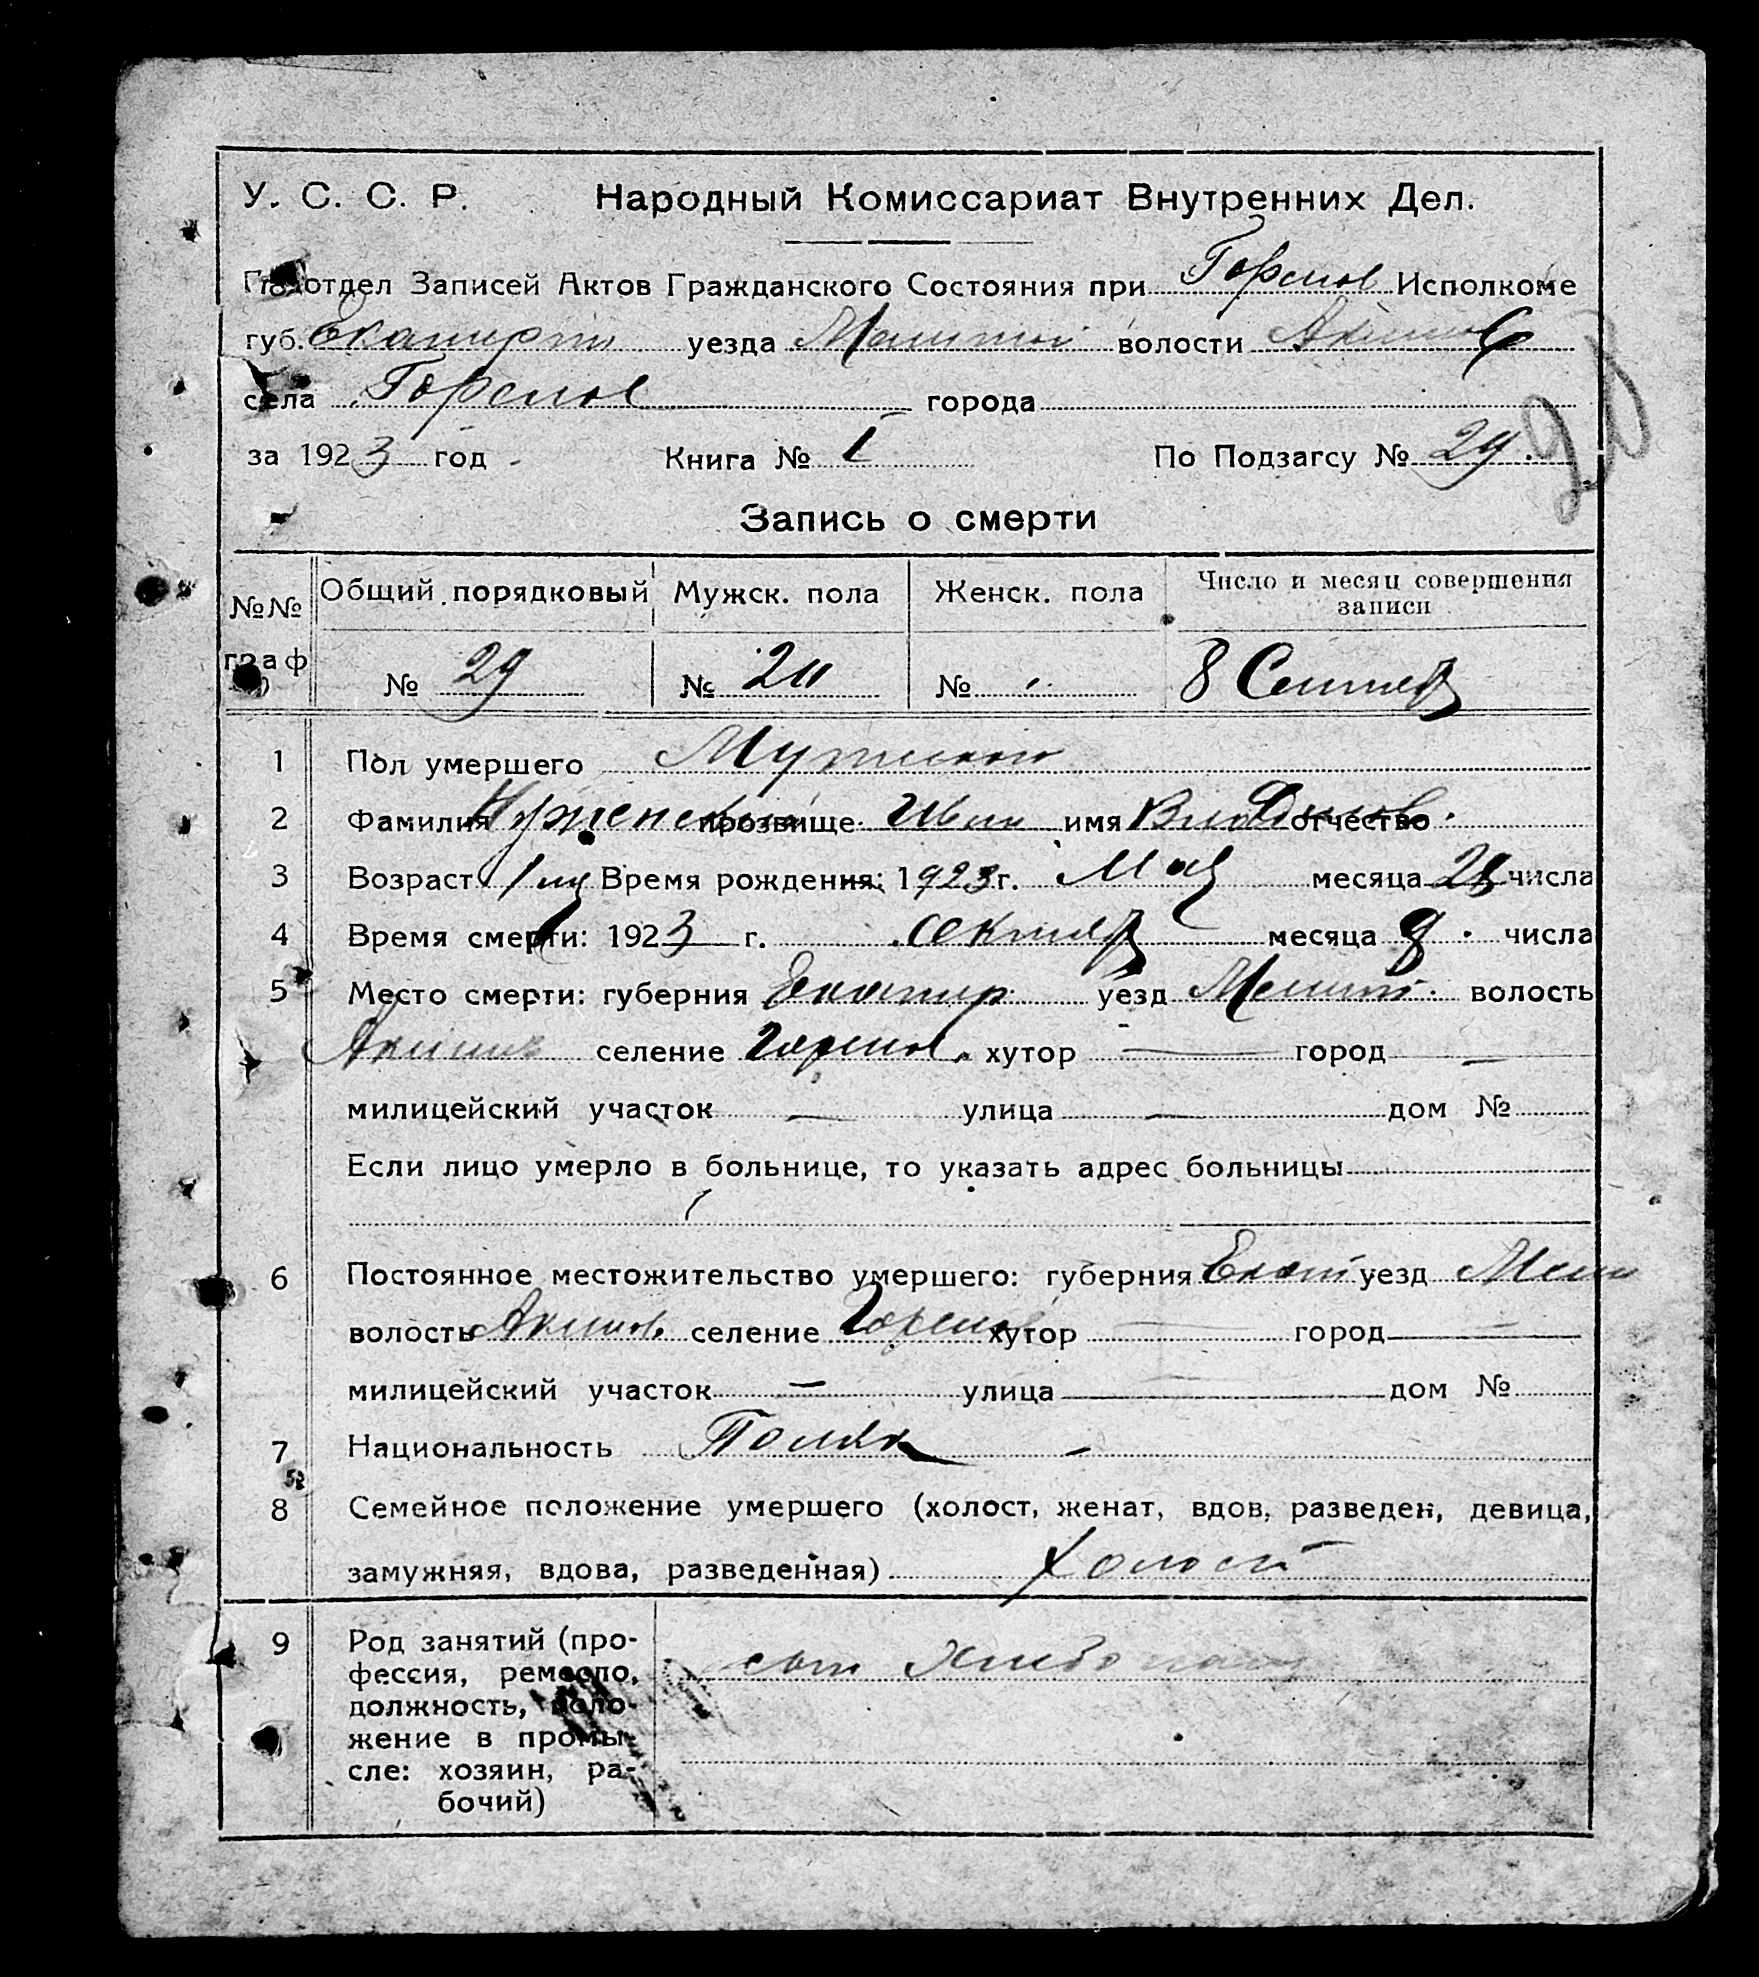 У. С. С. Р. Народный Комиссариат Внутренних Дел.
Подотдел Записей Актов Гражданского Состояния при Горелов Исполкоме
губ. Екатерин уезда Мелитоп волости Акимов
села Горелое города
за 1923 год Книга № I По Подзагсу № 29.
Запись о смерти
№№ граф Общий порядковый Мужск. пола Женск. пола Число и месяц совершения записи
№ 29 № № 8 Сентяб
1 Пол умершего Мужского
2 Фамилия прозвище Иван имя отчество
3 Возраст Время рождения: 1923 г. Мая месяца числа
4 Время смерти: 1923 г. месяца 8 числа
5 Место смерти: губерния Екатер уезд Мелит. волость
Акимов селение Горелов. хутор — город —
милицейский участок — улица — дом №
Если лицо умерло в больнице, то указать адрес больницы
6 Постоянное местожительство умершего: губерния Екат уезд Мели
волость Акимов. селение Горелов хутор — город —
милицейский участок — улица — дом №
7 Национальность Поляк —
8 Семейное положение умершего (холост, женат, вдов, разведен, девица,
замужняя, вдова, разведенная) Холост
9 Род занятий (про-
фессия, ремесло,
должность, поло-
жение в промы-
сле: хозяин, ра-
бочий)